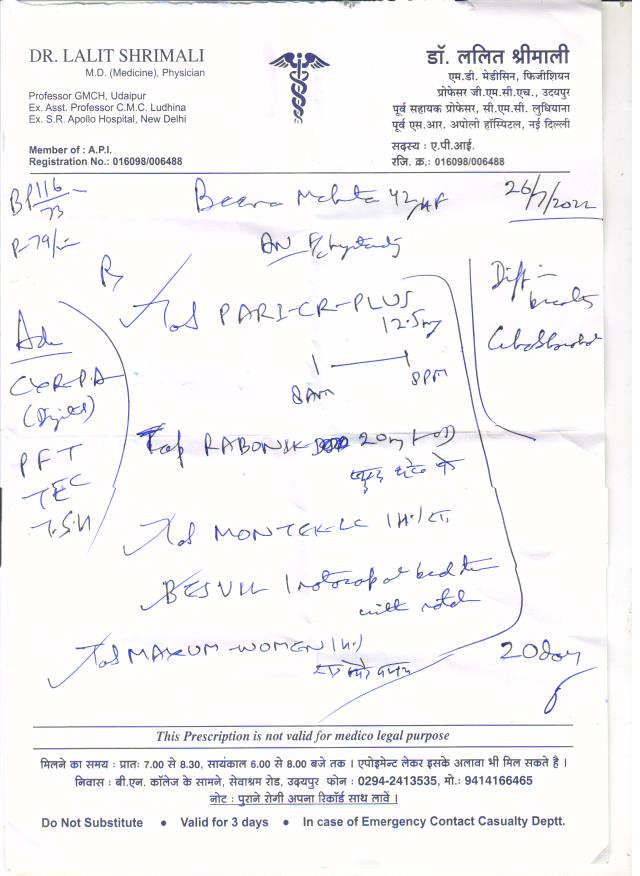 DR. LALIT SHRIMALI
M.D. (Medicine), Physician
Professor GMCH, Udaipur
Ex. Asst. Professor C.M.C. Ludhina
Ex. S.R. Apollo Hospital, New Delhi
Member of : A.P.I.
Registration No.: 016098/006488
डॉ. ललित श्रीमाली
एम.डी. मेडीसिन, फिजीशियन
प्रोफेसर जी.एम.सी.एच., उदयपुर
पूर्व सहायक प्रोफेसर, सी.एम.सी. लुधियाना
पूर्व एस.आर. अपोलो हॉस्पिटल, नई दिल्ली
सदस्य : ए.पी.आई.
रजि. क्र.: 016098/006488
BP 116/73
P-79/
Mehta 42/
26/7/2022
Rx
PARI-CR-PLUS
12.5mg
8AM 8PM
Adv
CXR-P.A
(Digital)
PFT
TEC
T.S.H
Cap RABONIK 20mg 1 OD
Tab MONTEK-LC
BESVIL 1 rotacap at bed time
with
Tab MAXUM-WOMEN
20 day
This Prescription is not valid for medico legal purpose
मिलने का समय : प्रातः 7.00 से 8.30, सायंकाल 6.00 से 8.00 बजे तक । एपोइन्मेन्ट लेकर इसके अलावा भी मिल सकते है ।
निवास : बी.एन. कॉलेज के सामने, सेवाश्रम रोड, उदयपुर फोन : 0294-2413535, मो.: 9414166465
नोट : पुराने रोगी अपना रिकॉर्ड साथ लावें ।
Do Not Substitute • Valid for 3 days • In case of Emergency Contact Casualty Deptt.